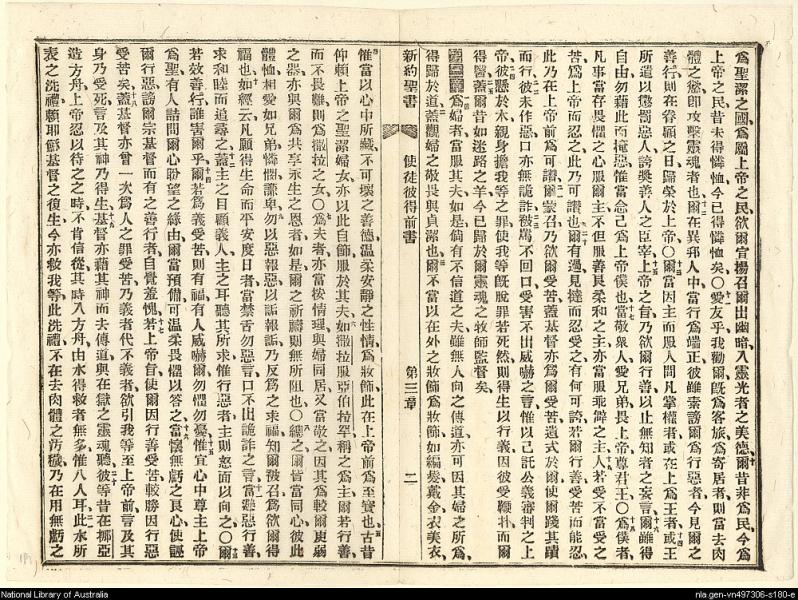 爲聖潔之國爲屬上帝之民欲爾宣揚召爾出幽暗入靈光者之美德十爾昔非爲民今爲
上帝之民昔未得憐恤今已得憐恤矣〇十一愛友乎我勸爾既爲客旅爲寄居者則當去肉
體之慾卽攻擊靈魂者也十二爾在異邦人中當行爲端正彼雖素謗爾爲行惡者今見爾之
善行則在眷顧之日歸榮於上帝〇十三爾當因主而服人間凡掌權者或在上爲王者十四或王
所遣以懲罰惡人誇獎善人之臣宰十五上帝之旨乃欲爾行善以止無知者之妄言十六爾雖得
自由勿藉此而掩惡惟當念己爲上帝僕也十七當敬衆人愛兄弟畏上帝尊君王〇十八爲僕者
凡事當存畏懼之心服爾主不但服善良柔和之主亦當服乖僻之主十九人若受不當受之
苦爲上帝而忍之此乃可讚也二十爾有過見撻而忍受之有何可誇若爾行善受苦而能忍
此乃在上帝前爲可讚二一爾蒙召乃欲爾受苦蓋基督亦爲爾受苦遺式於爾使爾踐其蹟
而行二二彼未作惡口亦無詭詐二三被罵不回口受害不出威嚇之言惟以己託公義審判之上
帝二四彼懸於木親身擔我等之罪使我等既脫罪若死然則得生以行義因彼受鞭扑而爾
得醫二五蓋爾昔如迷路之羊今已歸於爾靈魂之牧師監督矣
第三章一爲婦者當服其夫如是倘有不信道之夫雖無人向之傳道亦可因其婦之所爲
得歸於道二蓋觀婦之敬畏與貞潔也三爾不當以在外之妝飾爲妝飾如編髮戴金衣美衣
新約聖書 使徒彼得前書 第三章 二
四惟當以心中所藏不可壞之善德溫柔安靜之性情爲妝飾此在上帝前爲至寶也五古昔
仰賴上帝之聖潔婦女亦以此自飾服於其夫六如撒拉服亞伯拉罕稱之爲主爾若行善
而不畏難則爲撒拉之女〇七爲夫者亦當按情理與婦同居又當敬之因其爲較爾更弱
之器亦與爾爲共享永生之恩者如是爾之祈禱則無所阻也〇八總之爾皆當同心彼此
體恤相愛如兄弟憐憫謙卑九勿以惡報惡以詬報詬乃反爲之求福知爾被召爲欲爾得
福也十如經云凡願得生命而平安度日者當禁舌勿惡言口不出詭詐之言十一當避惡行善
求和睦而追尋之十二蓋主之目顧義人主之耳聽其所求惟行惡者主則怒面以向之〇十三爾
若效善行誰害爾乎十四爾若爲義受苦則有福有人威嚇爾勿懼勿憂十五惟宜心中尊主上帝
爲聖有人詰問爾心盼望之緣由爾當預備可溫柔畏懼以答之十六當懷無虧之良心使誣
爾行惡謗爾宗基督而有之善行者自覺羞愧十七若上帝旨使爾因行善受苦較勝因行惡
受苦矣十八蓋基督亦曾一次爲人之罪受苦乃義者代不義者欲引我等至上帝前言及其
身乃受死言及其神乃得生十九基督亦藉其神而去傳道與在獄之靈魂聽二十彼等昔在挪亞
造方舟上帝忍以待之之時不肯信從其時入方舟由水得救者無多惟八人耳二一此水所
表之洗禮賴耶穌基督之復生今亦救我等此洗禮不在去肉體之汚穢乃在用無虧之
National Library of Australia
nla.gen-vn497306-s180-e